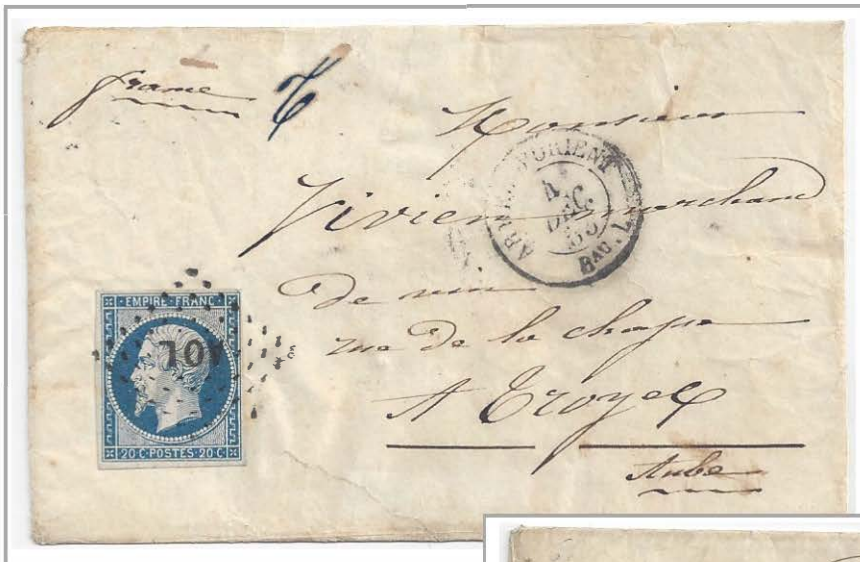 Monsieur
ARMÉE D'ORIENT
4
DEC.
55
BAU. L
Vivien marchand
de vin
rue de la chape
A Troyes
Aube
EMPIRE FRANC
AOL
20·C·POSTES·20·C